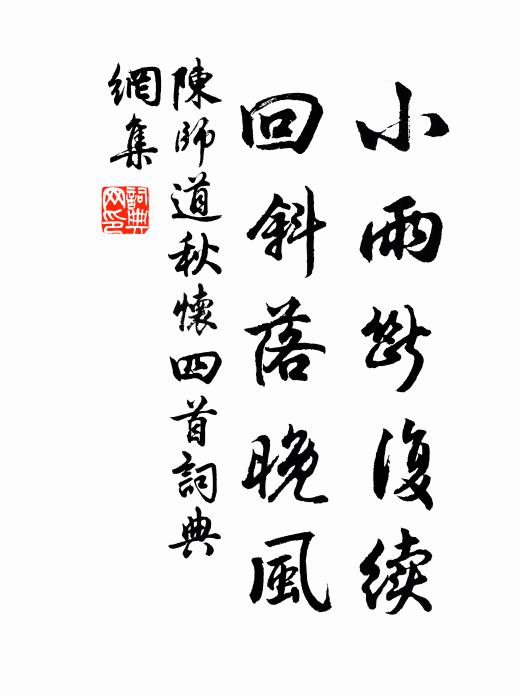 小雨斷復續
回斜落晚風
陳師道秋懷四首詞典
網集
詞典網印